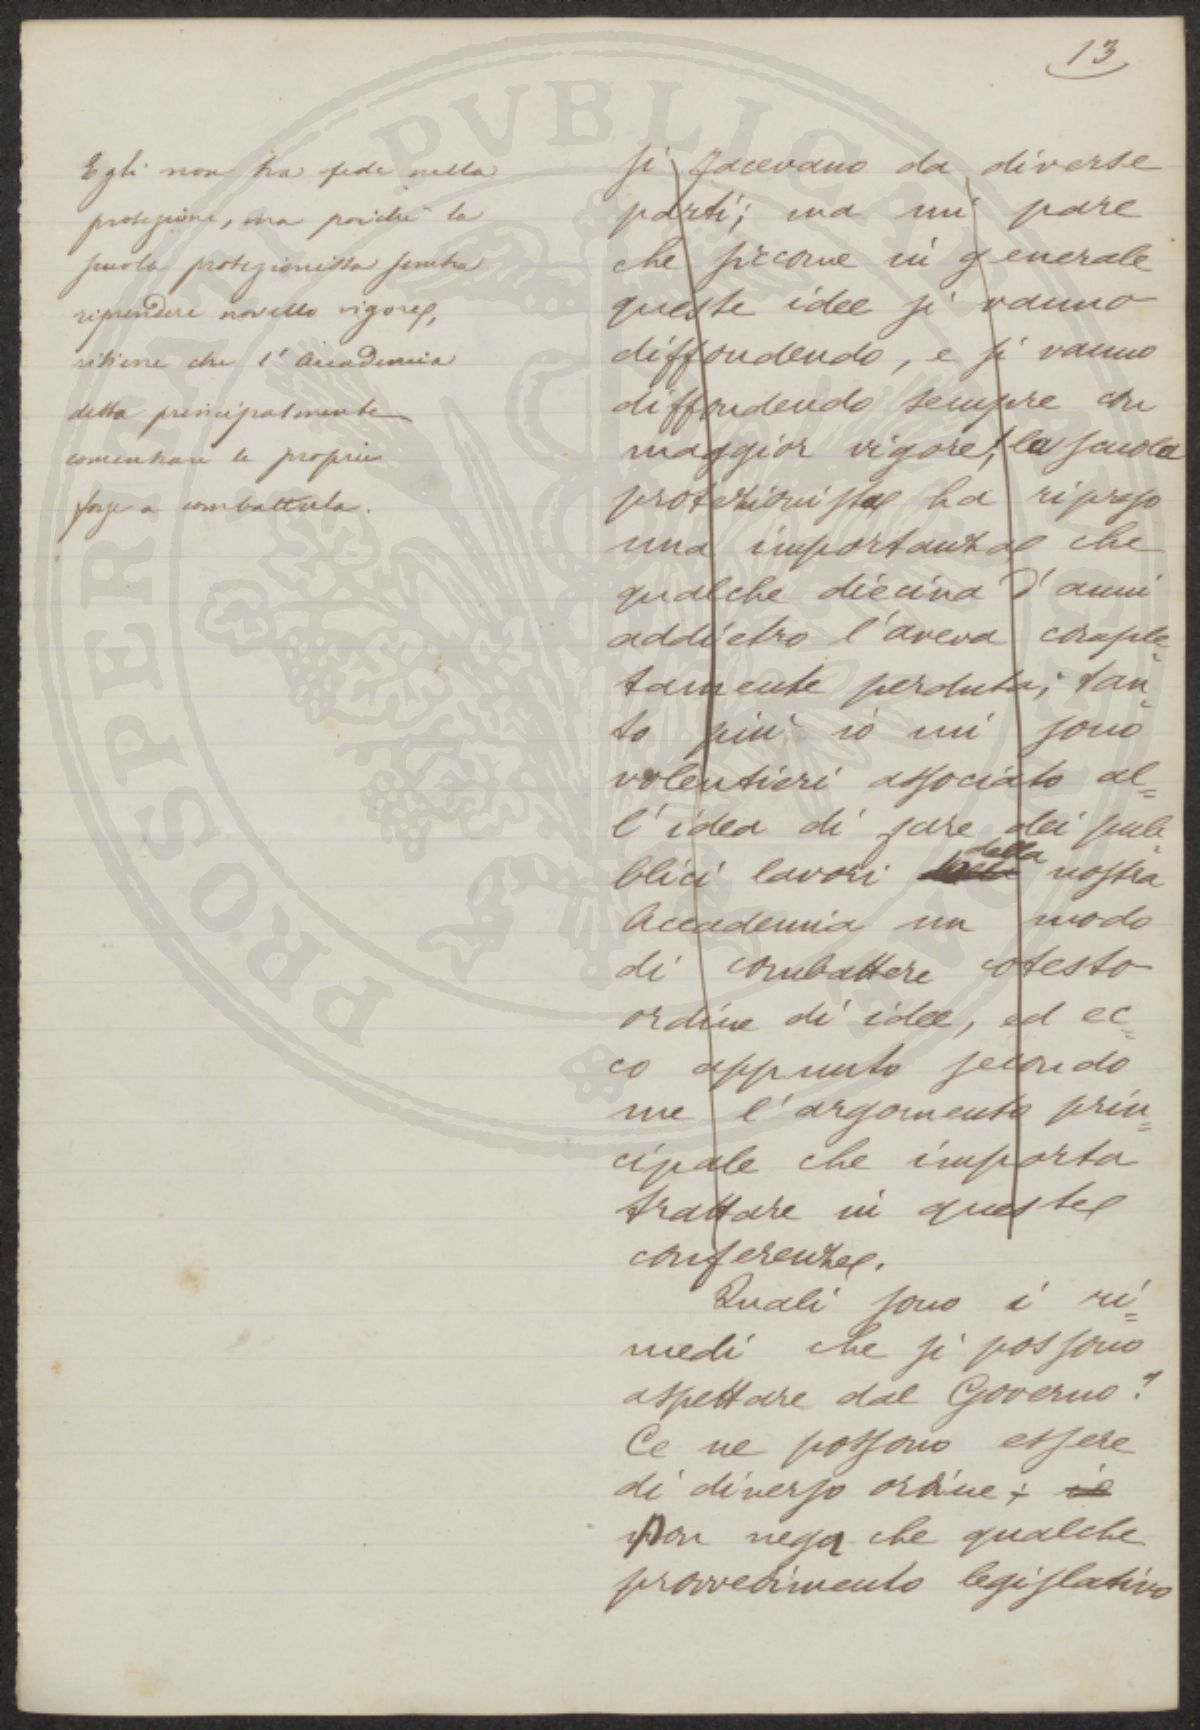 13
Egli non ha fede nella
protezione, ma poichè la
scuola protezionista sembra
riprendere novello vigore,
ritiene che l'Accademia
debba principalmente
concentrare le proprie
forze a combatterla.
si facevano da diverse
parti; ma mi pare
che siccome in generale
queste idee si vanno
diffondendo, e si vanno
diffondendo sempre con
maggior vigore, la scuola
protezionista ha ripreso
una importanza che
qualche diecina d'anni
addietro l'aveva comple=
tamente perduta; tan=
to più io mi sono
volentieri associato al=
l'idea di fare dei pub=
blici lavori della nostra
Accademia un modo
di combattere cotesto
ordine di idee, ed ec=
co appunto secondo
me l'argomento prin=
cipale che importa
trattare in queste
conferenze.
Quali sono i ri=
medi che si possono
aspettare dal Governo?
Ce ne possono essere
di diverso ordine; io
Non nega che qualche
provvedimento legislativo
PROSPERITATI PUBLICAE AUGENDAE